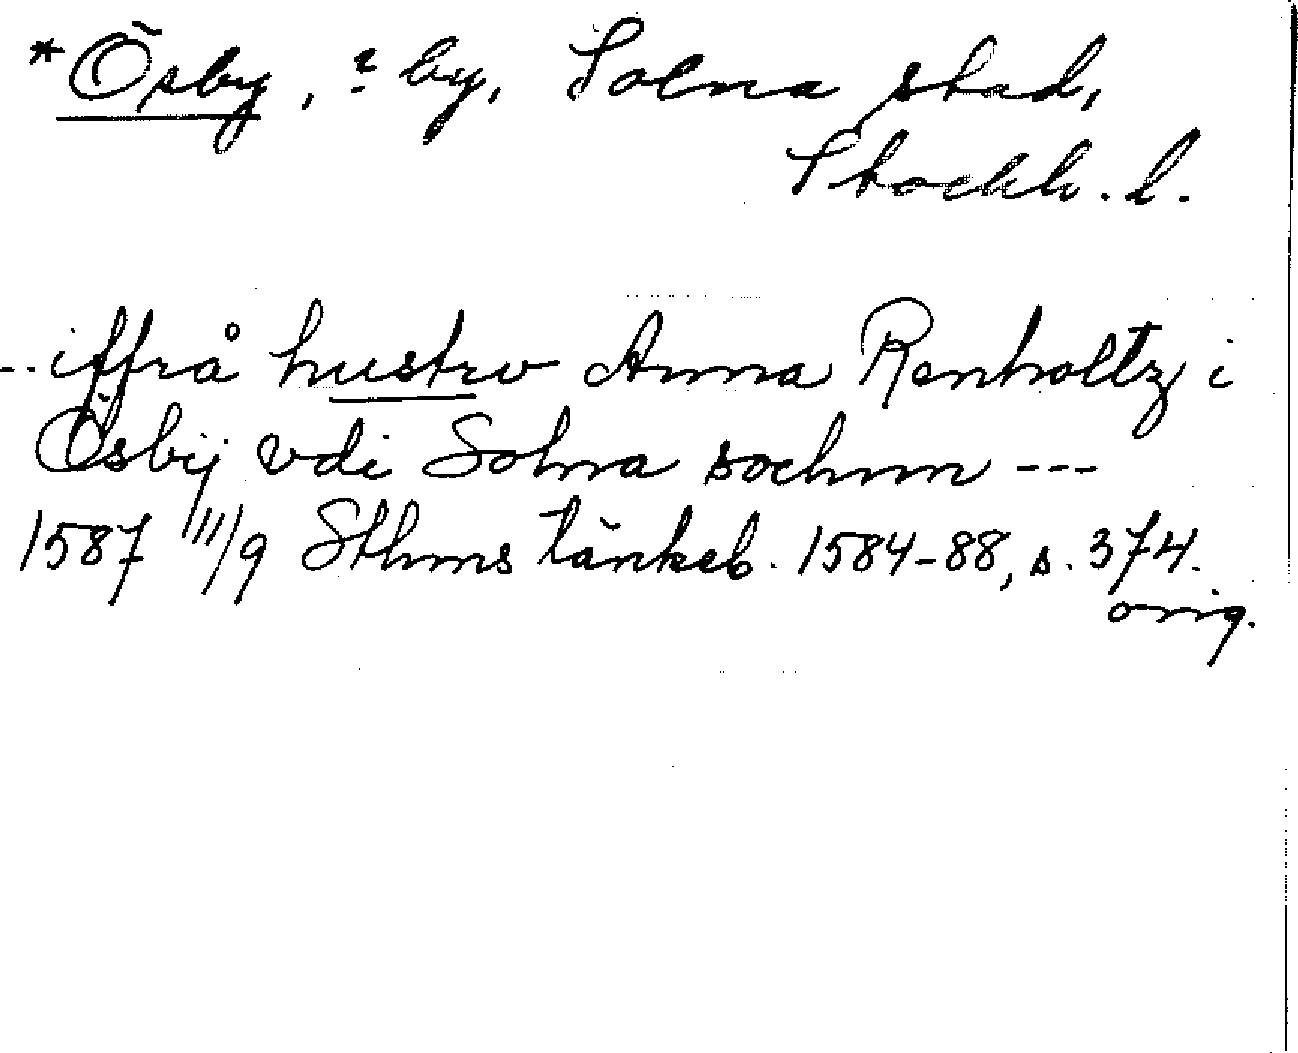 *Ösby, ? by, Solna stad,
Stockh. l.
--iffrå hustrv Anna Renholtz i
Ösbÿ vdi Solna sochnn ---
1587 11/9 Sthms tänkeb. 1584-88, s. 374.
orig.